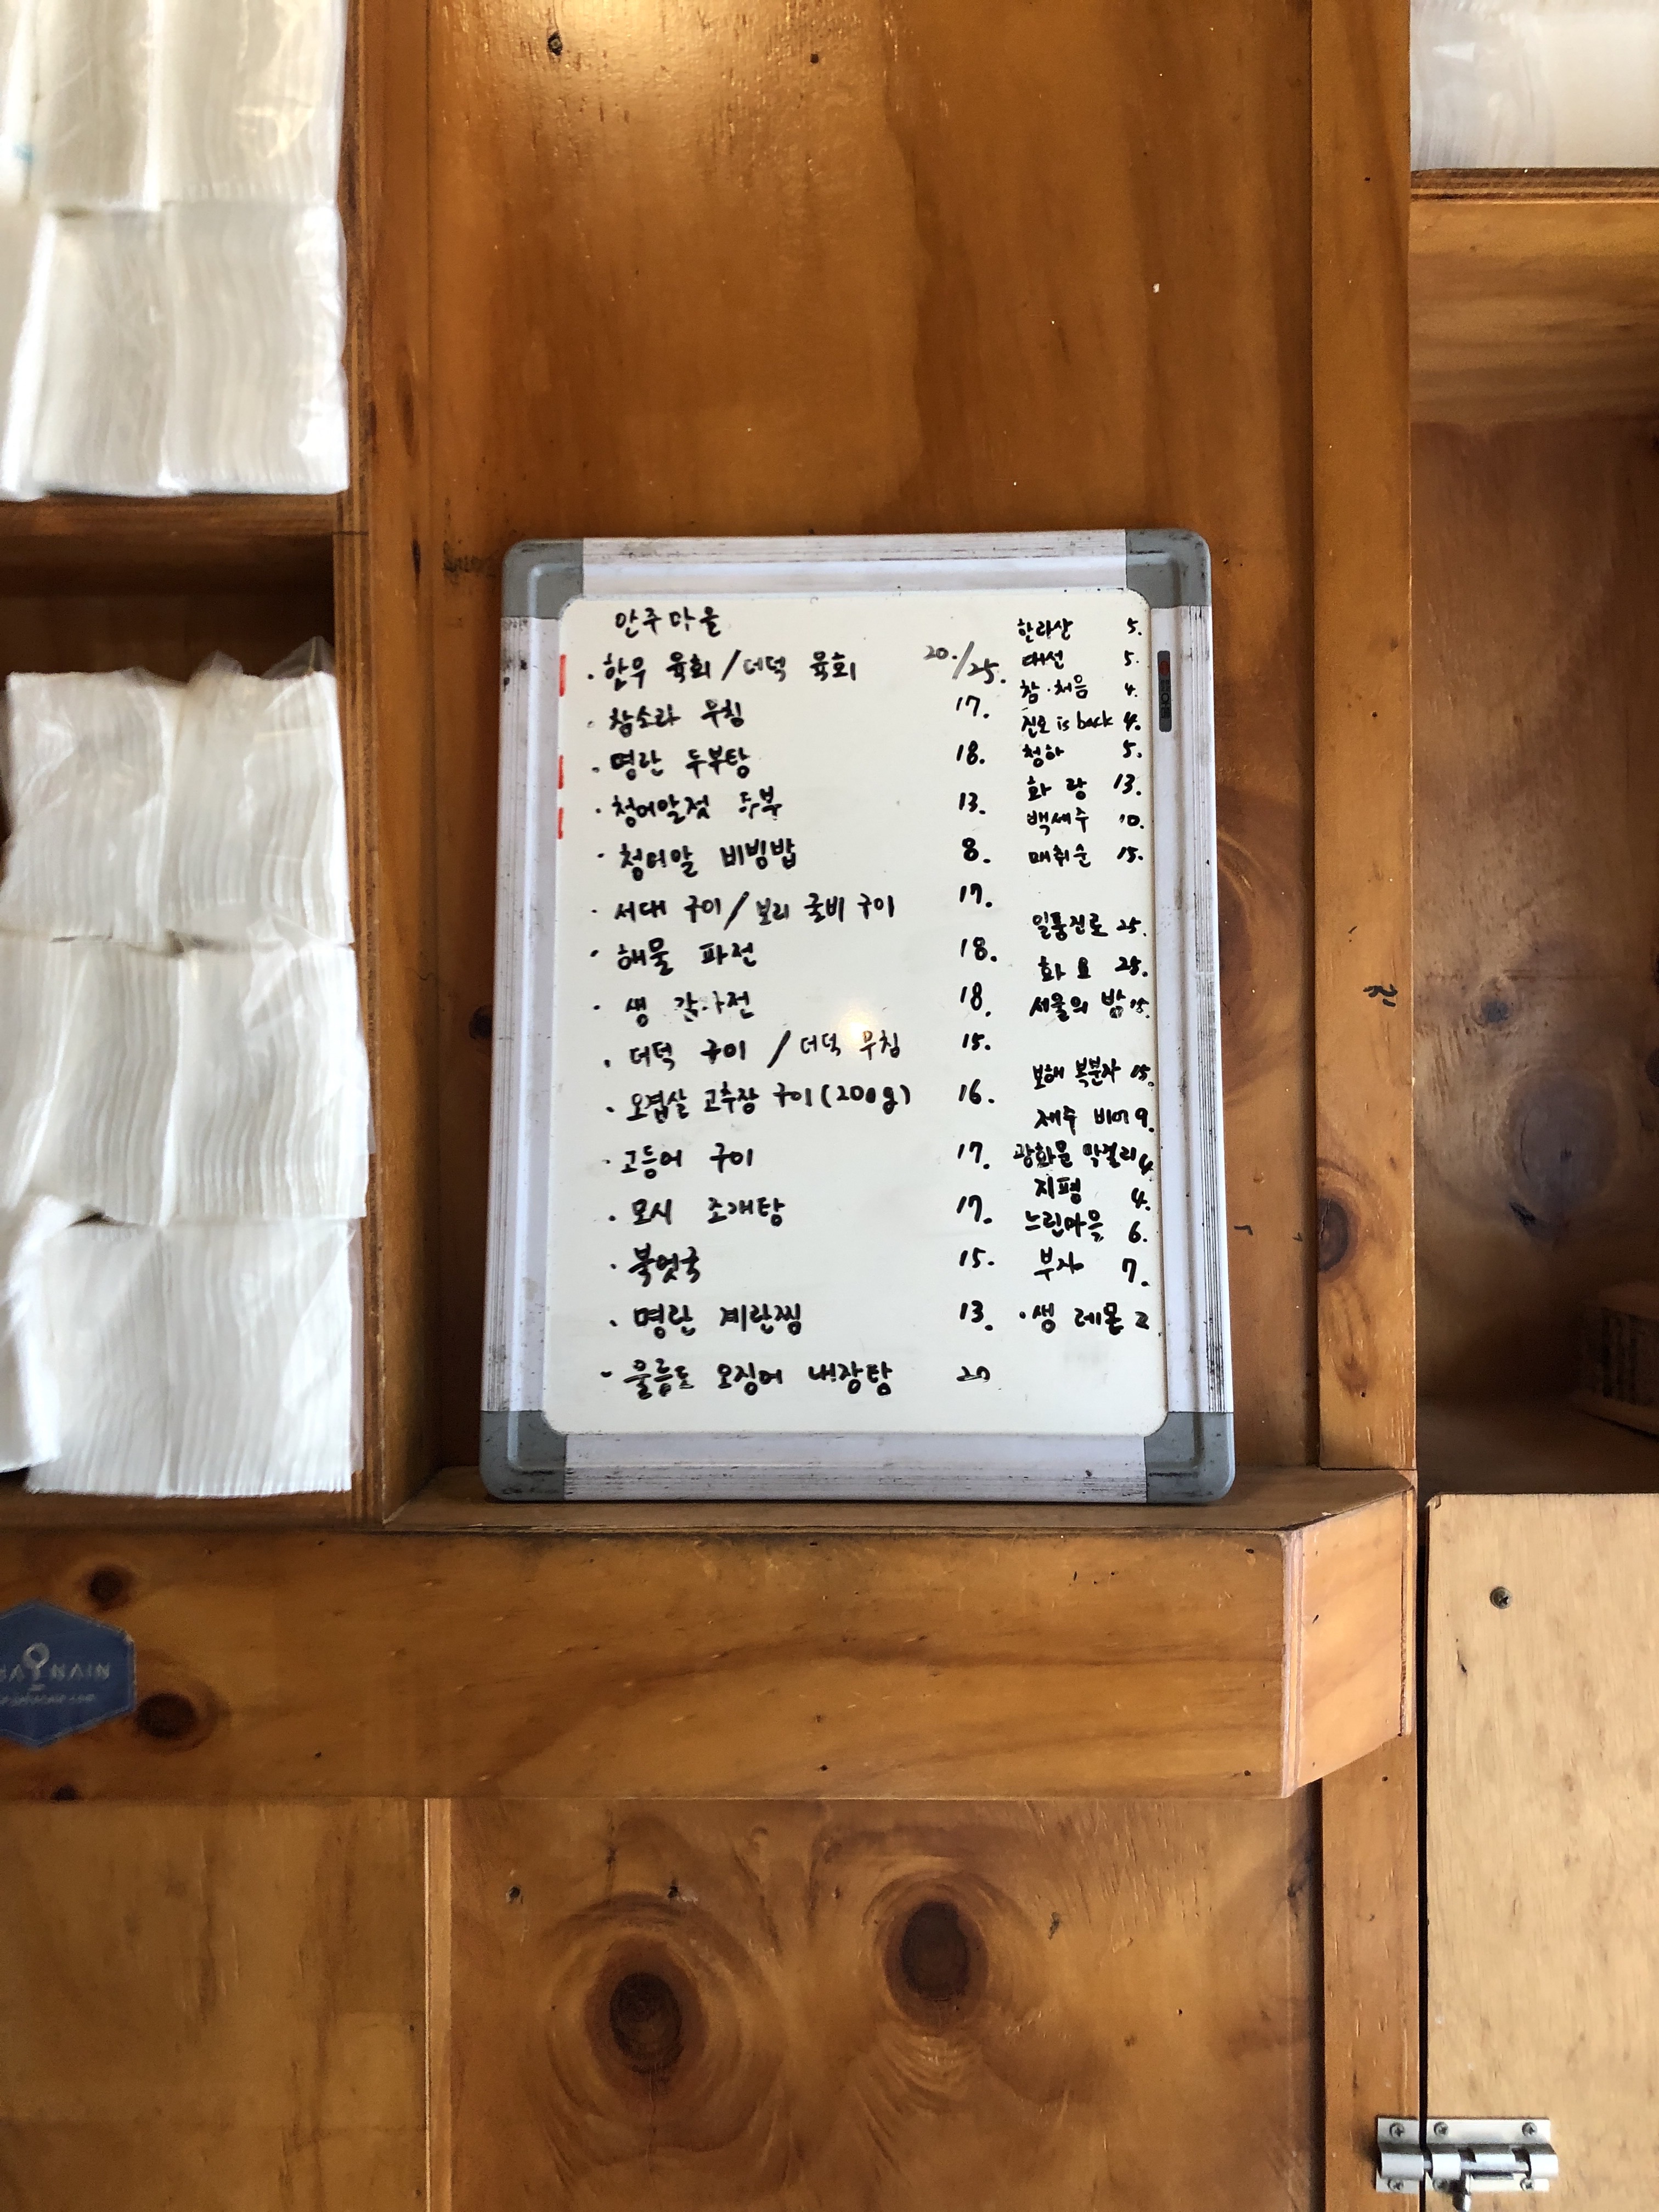 안주마을
· 한우 육회 / 더덕 육회 20. / 25.
· 참소라 무침 17.
· 명란 두부탕 18.
· 청어알젓 두부 13.
· 청어알 비빔밥 8.
· 서대 구이 / 보리 굴비 구이 17.
· 해물 파전 18.
· 생 감자전 18.
· 더덕 구이 / 더덕 무침 15.
· 오겹살 고추장 구이 (200g) 16.
· 고등어 구이 17.
· 모시 조개탕 17.
· 북엇국 15.
· 명란 계란찜 13.
· 울릉도 오징어 내장탕 20
한라산 5.
대선 5.
참·처음 4.
진로 is back 4.
청하 5.
화랑 13.
백세주 10.
매취순 15.
일품진로 25.
화요 25.
서울의 밤 15.
보해 복분자 15.
제주 비어 9.
광화문 막걸리 4.
지평 4.
느린마을 6.
부자 7.
· 생 레몬 2
NAIN